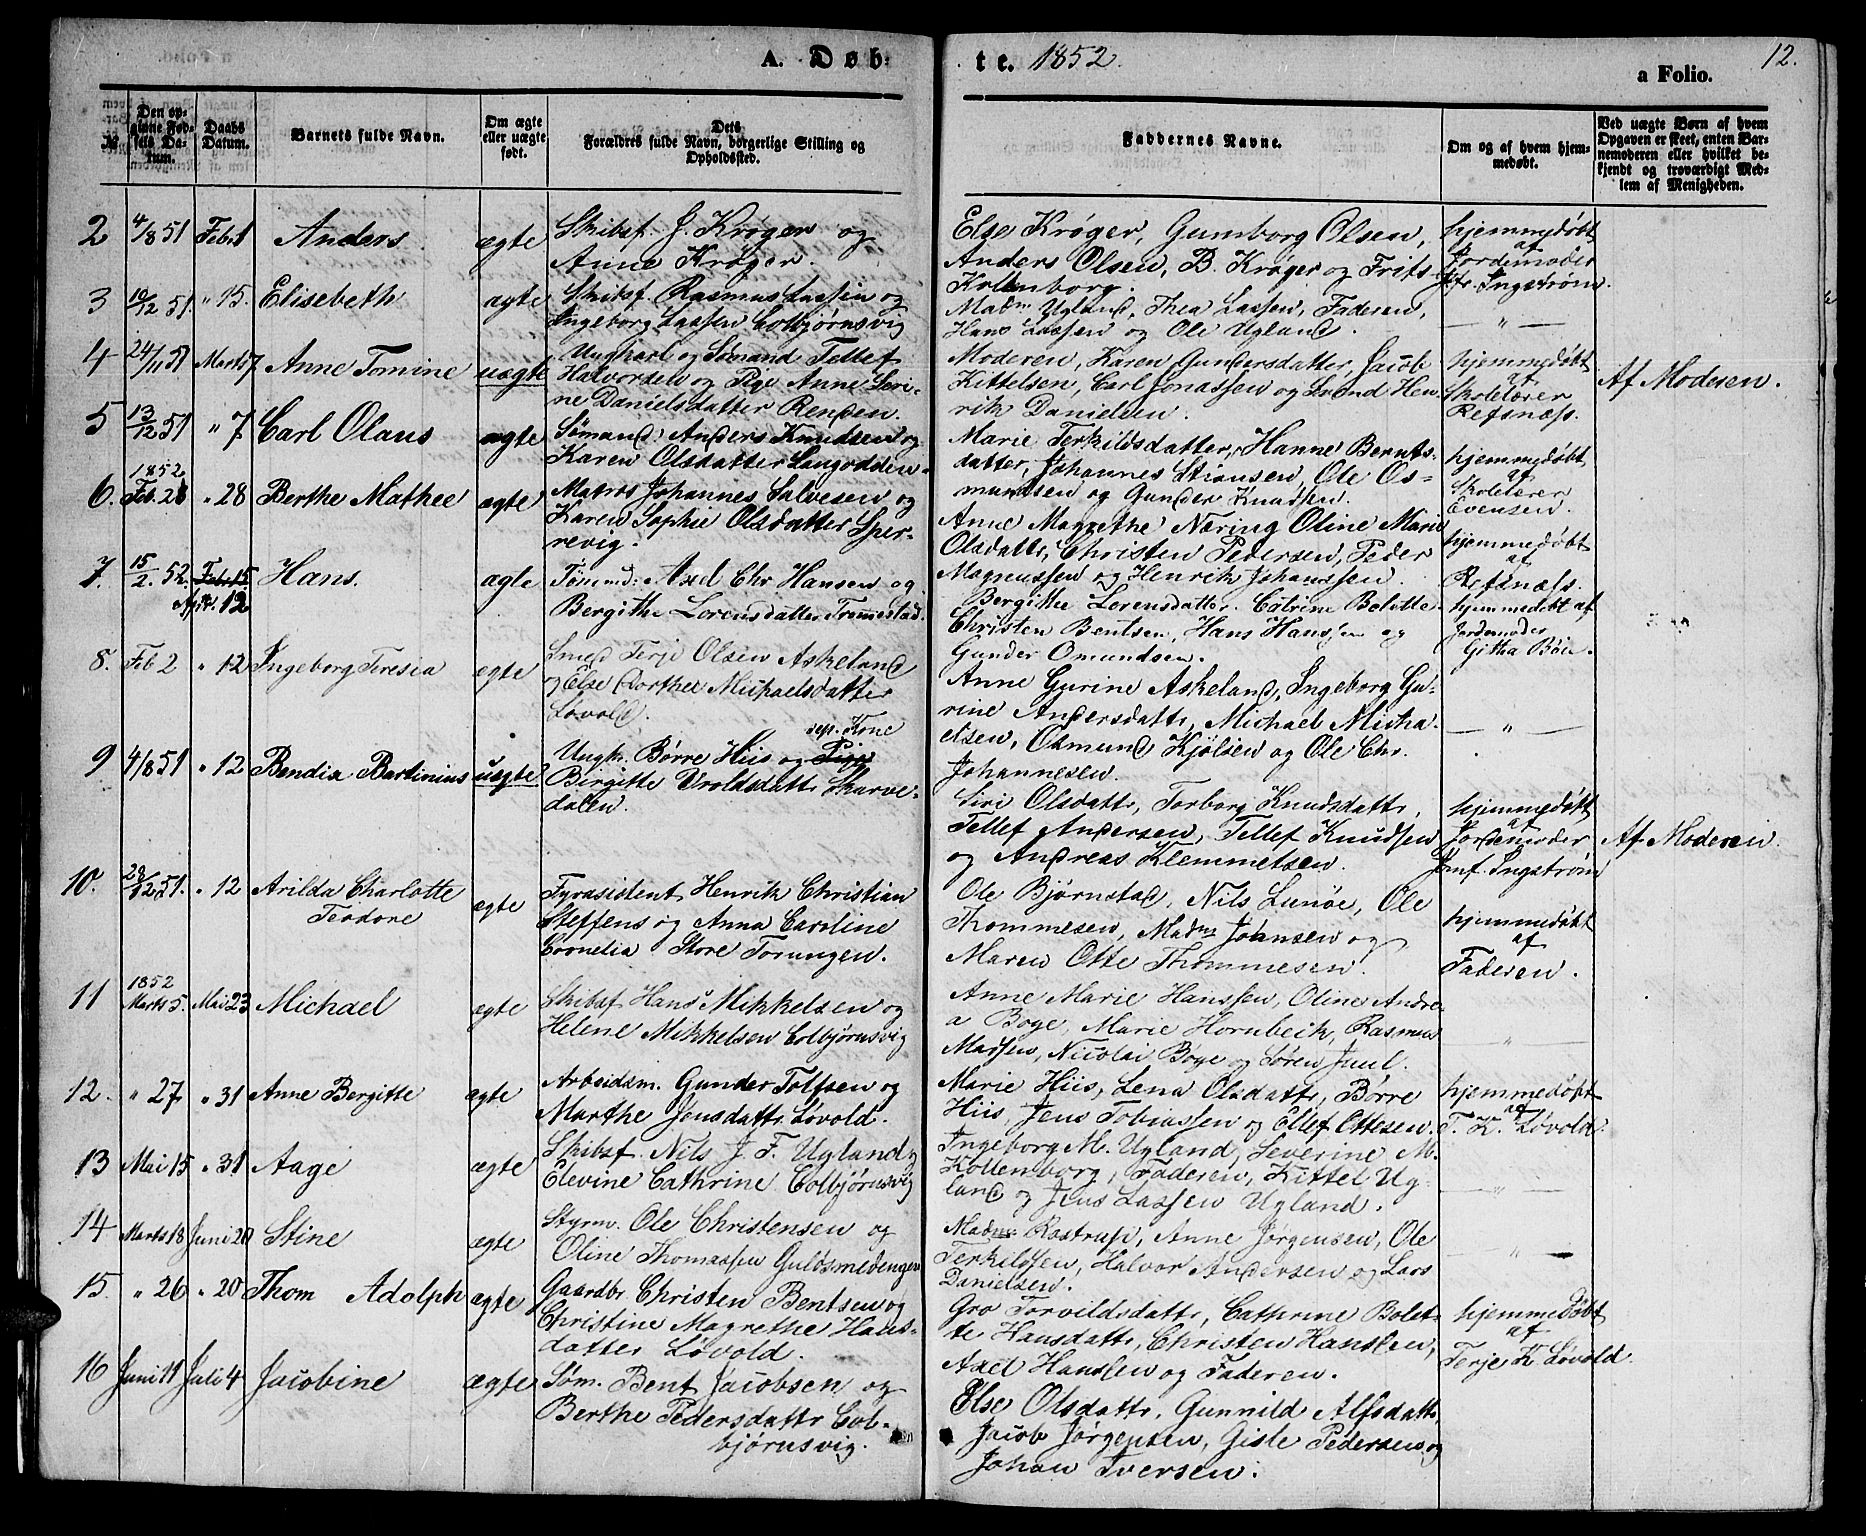 A. Døbte. 1852.
12.
a Folio.
№
Den opgivne Fødsels Datum.
Daabs Datum.
Barnets fulde Navn.
Om ægte eller uægte født.
Dets Forældres fulde Navn, borgerlige Stilling og Opholdssted.
Faddernes Navne.
Om og af hvem hjemmedøbt.
Ved uægte Børn af hvem Opgaven er skeet, enten Barnemoderen eller hvilket bekjendt og troværdigt Medlem af Menigheden.
2 4/8 51 Febr 1 Anders ægte Skibsf. J. Krøger og
Anne Krøger.
Else Krøger, Gumborg Olsen,
Anders Olsen, B. Krøger og Frits
Kollenborg.
hjemmedøbt
af
Jordemoder
Jfr. Ingstrøm.
3 10/12 51. " 15. Elisebeth ægte Skibsf. Rasmus Lassen og
Ingeborg Lassen Colbjørnsvig
Madm Ugland, Thea Lassen, Faderen,
Hans Lassen og Ole Ugland.
— " —
4 24/11 51 Marts 7 Anne Tomine uægte Ungkarl og Sømand Tellef
Halvorsen og Pige Anne Seri-
ne Danielsdatter Renden.
Moderen, Karen Gundersdatter, Jacob
Kittelsen, Carl Jonassen og Svend Hen-
rik Danielsen.
hjemmedøbt
af
Skolelærer
Refsnæs.
Af Moderen.
5 13/12 51 " 7 Carl Olaus ægte Sømand Anders Knudsen og
Karen Olsdatter Langodden.
Marie Terkildsdatter, Hanne Bernts-
datter, Johannes Stiansen, Ole Os-
mundsen og Gunder Knudsen.
hjemmedøbt
af
Skolelærer
Evensen.
1852
6. Feb. 28 " 28 Berthe Mathee ægte Matros Johannes Salvesen og
Karen Sophie Olsdatter Sper-
revig.
Anne Magrethe Næring Oline Marie
Olsdattr, Christen Pedersen, Peder
Magnussen og Henrik Johanssen.
hjemmedøbt
af
Refsnæs.
7. 15/2. 52. Febr 15 Hans. ægte Tømmd: Axel Chr. Hansen og
April. 12
Bergithe Lorensdatter Trommestad.
Bergithe Lorensdatter. Catrine Bolette.
Christen Bentsen, Hans Hanssen og
Gunder Omundsen.
hjemmedøbt af
Jordemoder
Githa Bøie.
8. Feb 2 " 12 Ingeborg Teresia ægte Smed Terje Olsen Askeland
og Else Dorthee Michaelsdatter
Løvold.
Anne Gurine Askeland, Ingeborg Gu-
rine Andersdattr, Michael Micha-
elsen, Osmund Kjølsen og Ole Chr.
Johannesen.
— " —
sep. Kone
9 4/8 51 " 12 Bendix Bartinius uægte Ungk. Børre Hiis og Pige
Birgitte Uroldsdattr Skarve-
dalen.
Siri Olsdattr, Torborg Knudsdattr,
Tellef Andersen, Tellef Knudsen
og Andreas Klemmetsen.
hjemmedøbt
af
Jordemoder
Jomf. Ingstrøm
Af Moderen.
10. 28/12 51. " 12 Arilda Charlotte
Terdore
ægte Fyrasistent Henrik Christian
Steffens og Anna Caroline
Cornelia Store Torungen.
Ole Bjørnstad, Nils Lunøe, Ole
Thommesen, Madm Johnsen og
Maren Otte Thommesen.
hjemmedøbt
af
Faderen.
1852
11 Marts 5. Mai 23 Michael ægte Skibsf Hans Mikkelsen og
Helene Mikkelsen Colbjørnsvig
Anne Marie Hanssen, Oline Andre-
a Boge, Marie Hornbeck, Rasmus
Madsen, Nicolai Boye og Søren Juul.
— " —
12. " 27 " 31 Anne Bergitte ægte Arbeidsm. Gunder Tolfsen og
Marthe Jensdattr Løvold.
Marie Hiis, Lena Olsdattr, Børre
Hiis, Jens Tobiassen og Ellef Ottesen.
hjemmedøbt
af
T. K. Løvold.
13 Mai 15 " 31 Aage ægte Skibsf. Nils J. F. Ugland og
Elevine Cathrine Colbjørnsvig
Ingeborg M. Ugland, Severine M.
Kollenborg, Faderen, Kittel Ug-
land og Jens Lassen Ugland.
— " —
14 Marts 18 Juni 20 Stine ægte Styrm. Ole Christensen og
Oline Thomassen Guldsmedengen
Madm Rostrup, Anne Jørgensen, Ole
Terkildsen, Halvor Andersen og Lars
Danielsen.
— " —
15. " 26 " 20 Thom Adolph ægte Gaardbr Christen Bentsen og
Christine Magrethe Hans-
datter Løvold.
Gro Torvildsdattr, Cathrine Bolet-
te Hansdattr, Christen Hanssen,
Axel Hanssen og Faderen.
hjemmedøbt
af
Terje K Løvold.
16 Juni 11 Juli 4 Jacobine ægte Søm. Bent Jacobsen og
Berthe Pedersdattr Col-
bjørnsvig.
Else Olsdattr, Gunnild Alfsdattr
Jacob Jørgensen, Gisle Pedersen og
Johan Iversen.